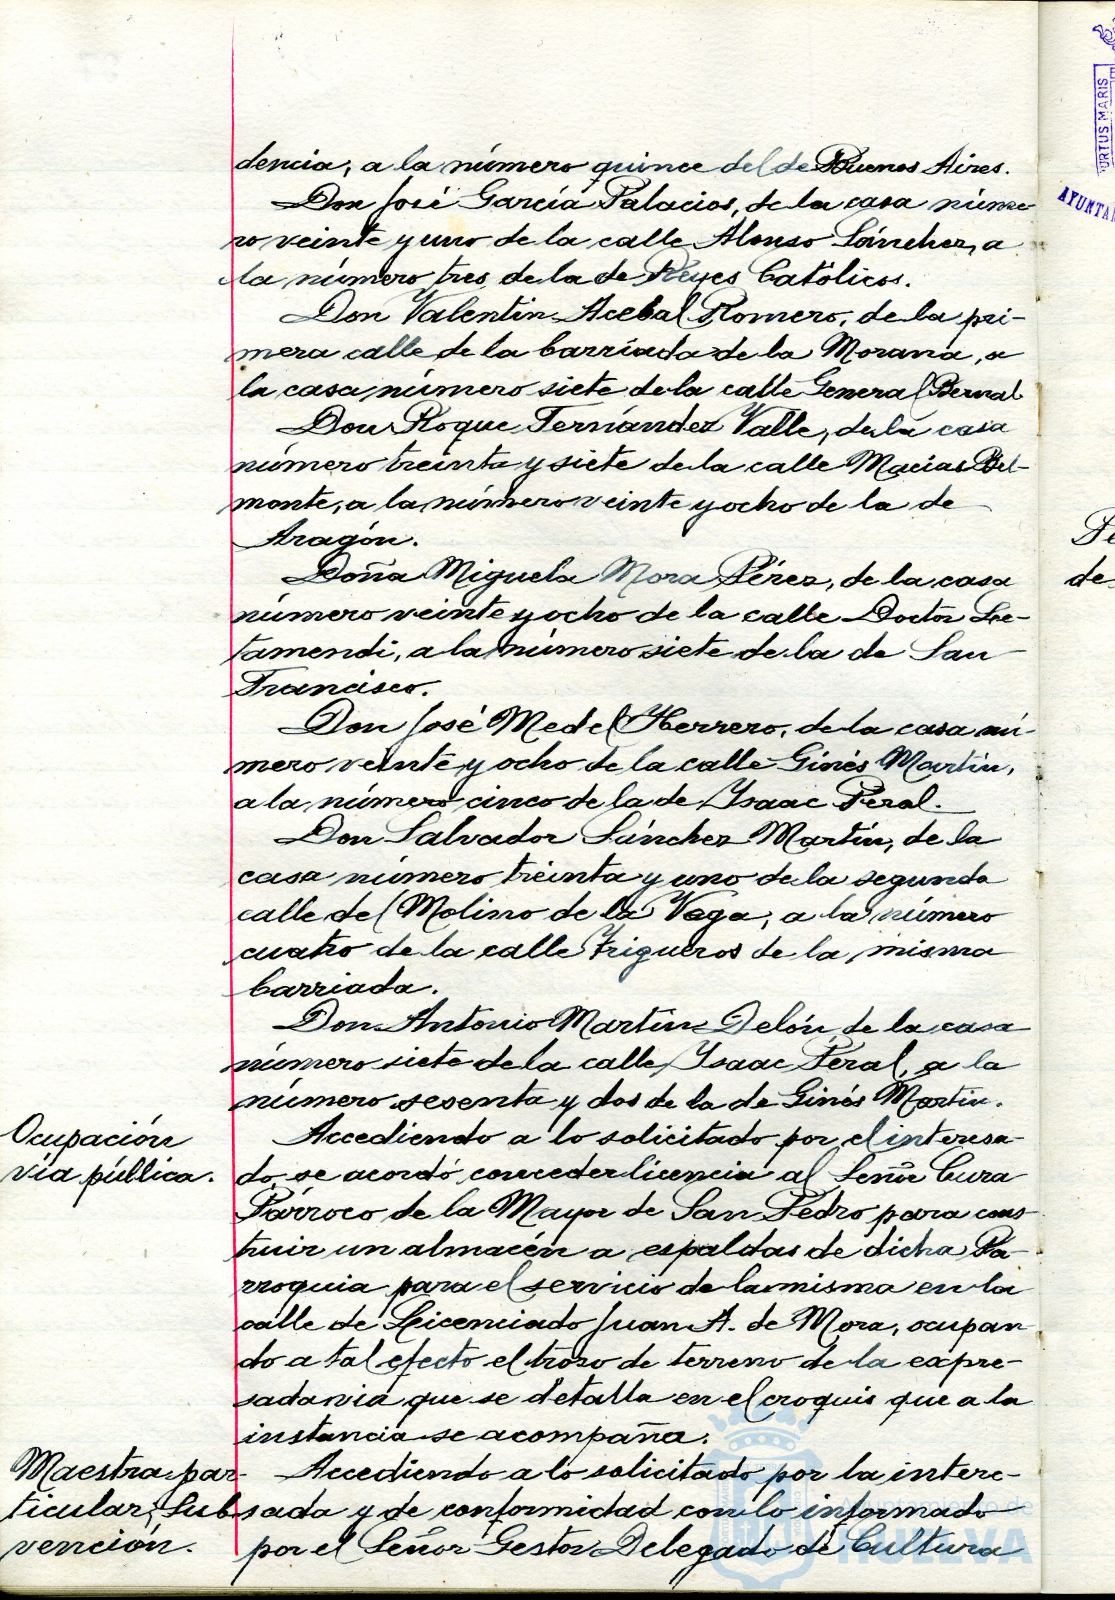 dencia, a la número quince del de Buenos Aires.
Don José García Palacios, de la casa núme-
ro veinte y uno de la calle Alonso Sánchez, a
la número tres de la de Reyes Católicos.
Don Valentín Acebal Romero, de la pri-
mera calle de la barriada de la Morana, a
la casa número siete de la calle General Bernal
Don Roque Fernández Valle, de la casa
número treinta y siete de la calle Macías Bel-
monte, a la número veinte y ocho de la de
Aragón.
Doña Miguela Mora Pérez, de la casa
número veinte y ocho de la calle Doctor Le-
tamendi, a la número siete de la de San
Francisco.
Don José Medel Herrero, de la casa nú-
mero veinte y ocho de la calle Ginés Martín,
a la número cinco de la de Isaac Peral.
Don Salvador Sánchez Martín, de la
casa número treinta y uno de la segunda
calle del Molino de la Vega, a la número
cuatro de la calle Trigueros de la misma
barriada.
Don Antonio Martín Delón, de la casa
número siete de la calle Isaac Peral, a la
número sesenta y dos de la de Ginés Martín.
Ocupación
vía pública.
Accediendo a lo solicitado por el interesa-
do se acordó conceder licencia al Señor Cura
Párroco de la Mayor de San Pedro para cons-
truir un almacén a espaldas de dicha Pa-
rroquia para el servicio de la misma en la
calle de Licenciado Juan A. de Mora, ocupan-
do a tal efecto el trozo de terreno de la expre-
sada vía que se detalla en el croquis que a la
instancia se acompaña.
Maestra par-
ticular, Sub-
vención.
Accediendo a lo solicitado por la intere-
sada y de conformidad con lo informado
por el Señor Gestor Delegado de Cultura
URTUS MARIS
AYUNTA
de
HUELVA